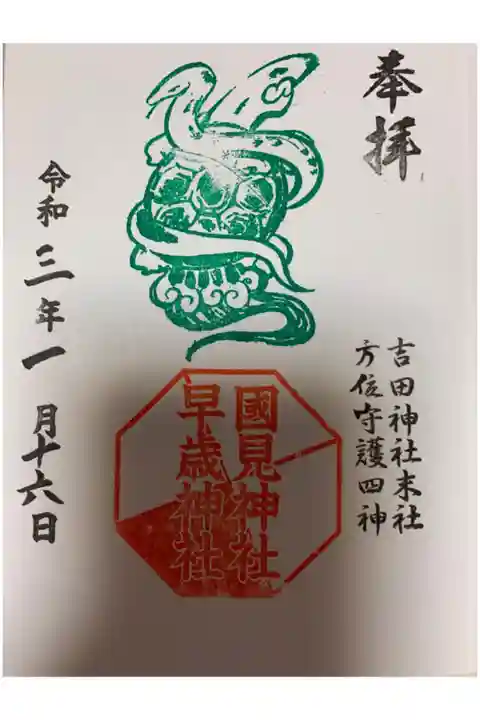 奉拝
吉田神社末社
方位守護四神
國見神社
早歳神社
令和三年一月十六日